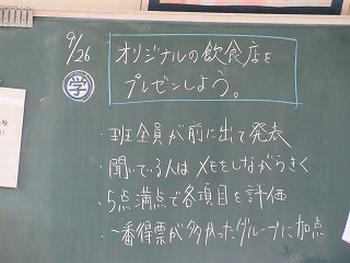 9/26
学
オリジナルの飲食店を
プレゼンしよう。
・班全員が前に出て発表
・聞いている人はメモをしながらきく
・5点満点で各項目を評価
・一番得票が多かったグループに加点